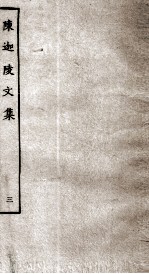 陳迦陵文集
三